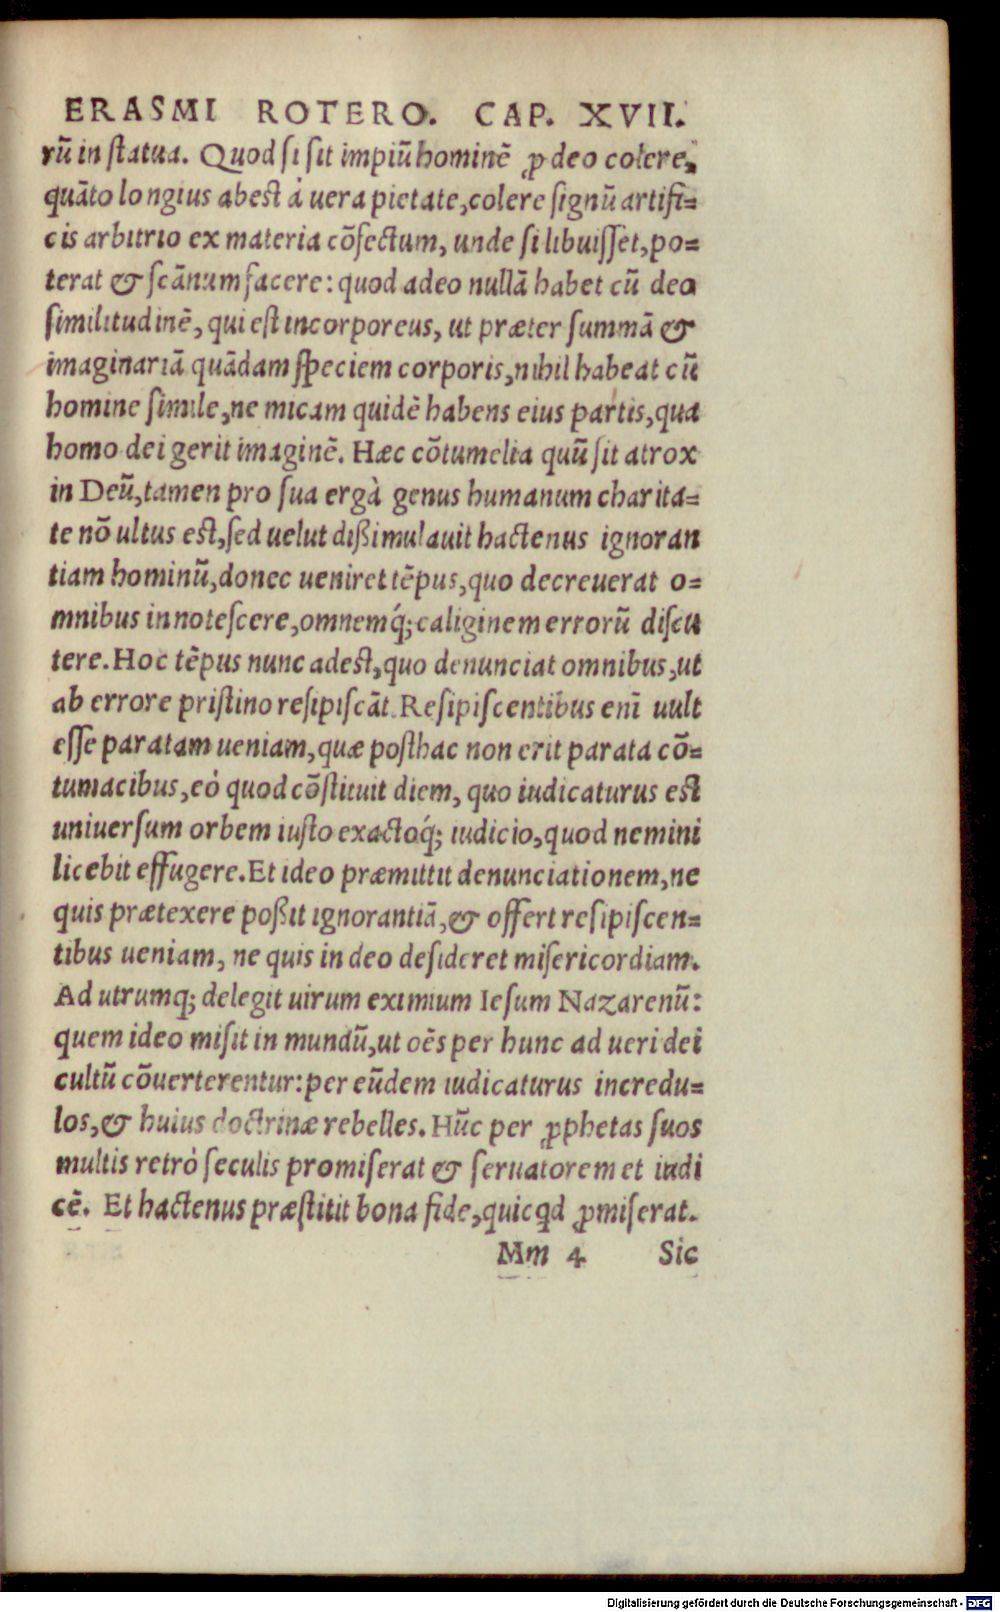 ERASMI ROTERO. CAP. XVII.
rũ in ſtatua. Quod ſi ſit impiũ hominẽ ꝓ deo colere,
quãto longius abest à uera pietate, colere ſignũ artifi=
cis arbitrio ex materia cõfectum, unde ſi libuiſſet, po=
terat & ſcãnum facere: quod adeo nullã habet cũ deo
ſimilitudinẽ, qui eſt incorporeus, ut præter ſummã &
imaginariã quãdam ſpeciem corporis, nihil habeat cũ
homine ſimile, ne micam quidẽ habens eius partis, qua
homo dei gerit imaginẽ. Hæc cõtumelia quũ ſit atrox
in Deũ, tamen pro ſua ergà genus humanum charita=
te nõ ultus eſt, ſed uelut dißimulauit hactenus ignoran
tiam hominũ, donec ueniret tẽpus, quo decreuerat o=
mnibus innoteſcere, omnemq́; caliginem errorũ diſcu
tere. Hoc tẽpus nunc adeſt, quo denunciat omnibus, ut
ab errore priſtino reſipiſcãt. Reſipiſcentibus enĩ uult
eſſe paratam ueniam, quæ poſthac non erit parata cõ=
tumacibus, eò quod cõſtituit diem, quo iudicaturus est
uniuerſum orbem iuſto exactoq́; iudicio, quod nemini
licebit effugere. Et ideo præmittit denunciationem, ne
quis prætexere poßit ignorantiã, & offert reſipiſcen=
tibus ueniam, ne quis in deo deſideret miſericordiam.
Ad utrumq; delegit uirum eximium Ieſum Nazarenũ:
quem ideo miſit in mundũ, ut oẽs per hunc ad ueri dei
cultũ cõuerterentur: per eũdem iudicaturus incredu=
los, & huius doctrinæ rebelles. Hũc per ꝓphetas ſuos
multis retrò ſeculis promiſerat & ſeruatorem et iudi
cẽ. Et hactenus præſtitit bona fide, quicqd ꝓmiſerat.
Mm 4 Sic
Digitalisierung gefördert durch die Deutsche Forschungsgemeinschaft - DFG